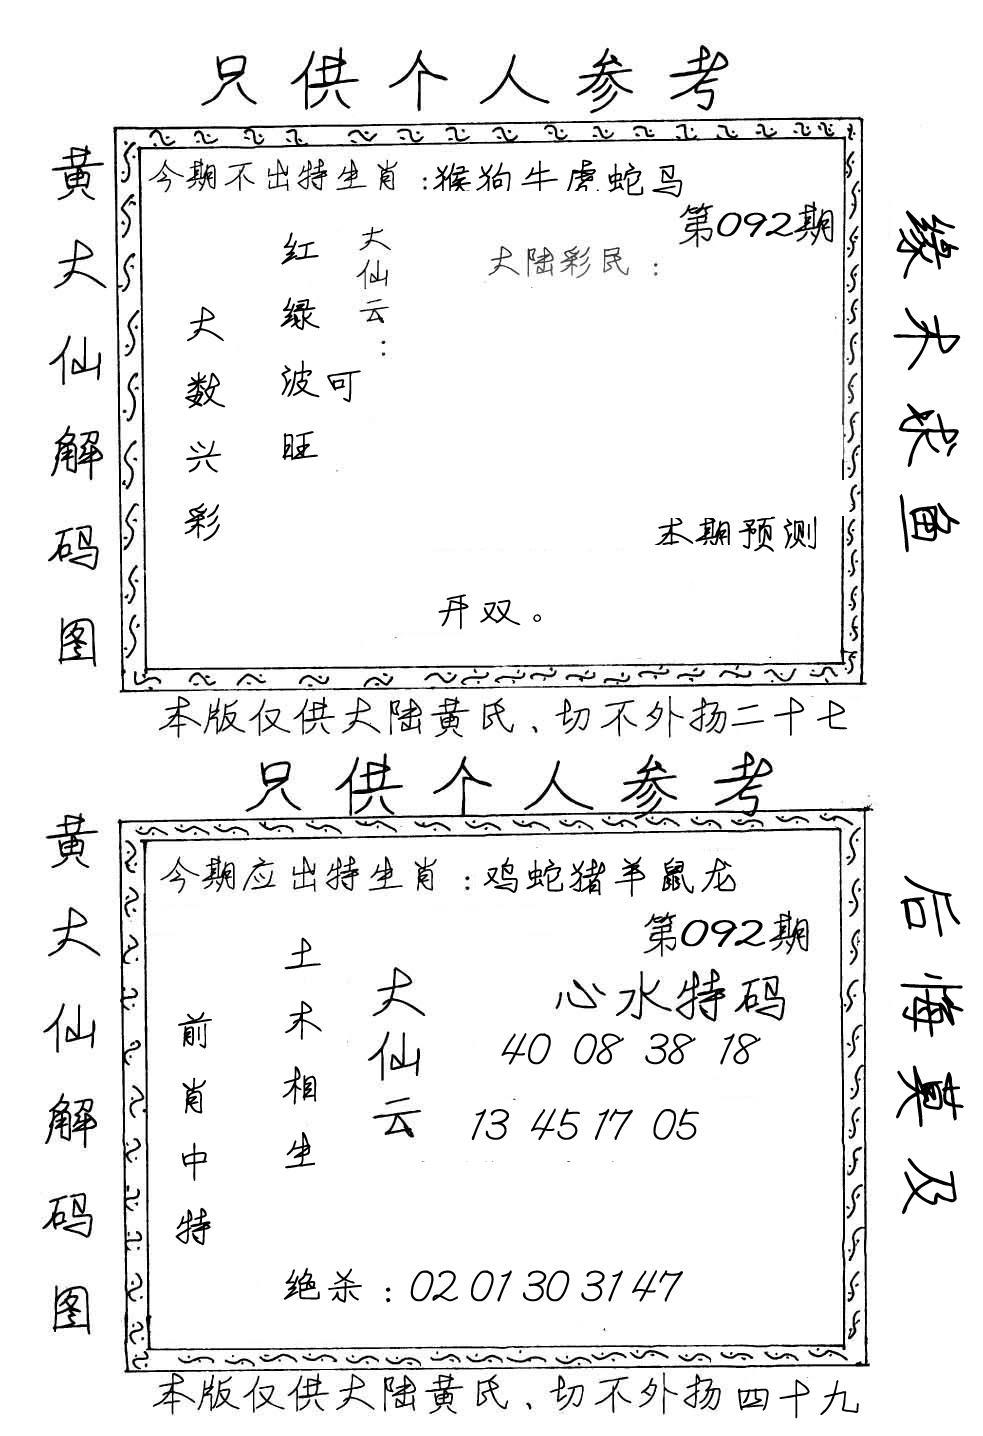 只供个人参考
黄大仙解码图
今期不出特生肖:猴狗牛虎蛇马
第092期
大陆彩民:
大仙云:
红绿波旺
可
大数兴彩
本期预测
开双。
缘木求鱼
本版仅供大陆黄氏、切不外扬二十七
只供个人参考
黄大仙解码图
今期应出特生肖:鸡蛇猪羊鼠龙
第092期
心水特码
大仙云
40 08 38 18
13 45 17 05
土木相生
前肖中特
绝杀:02 01 30 31 47
后悔莫及
本版仅供大陆黄氏、切不外扬四十九